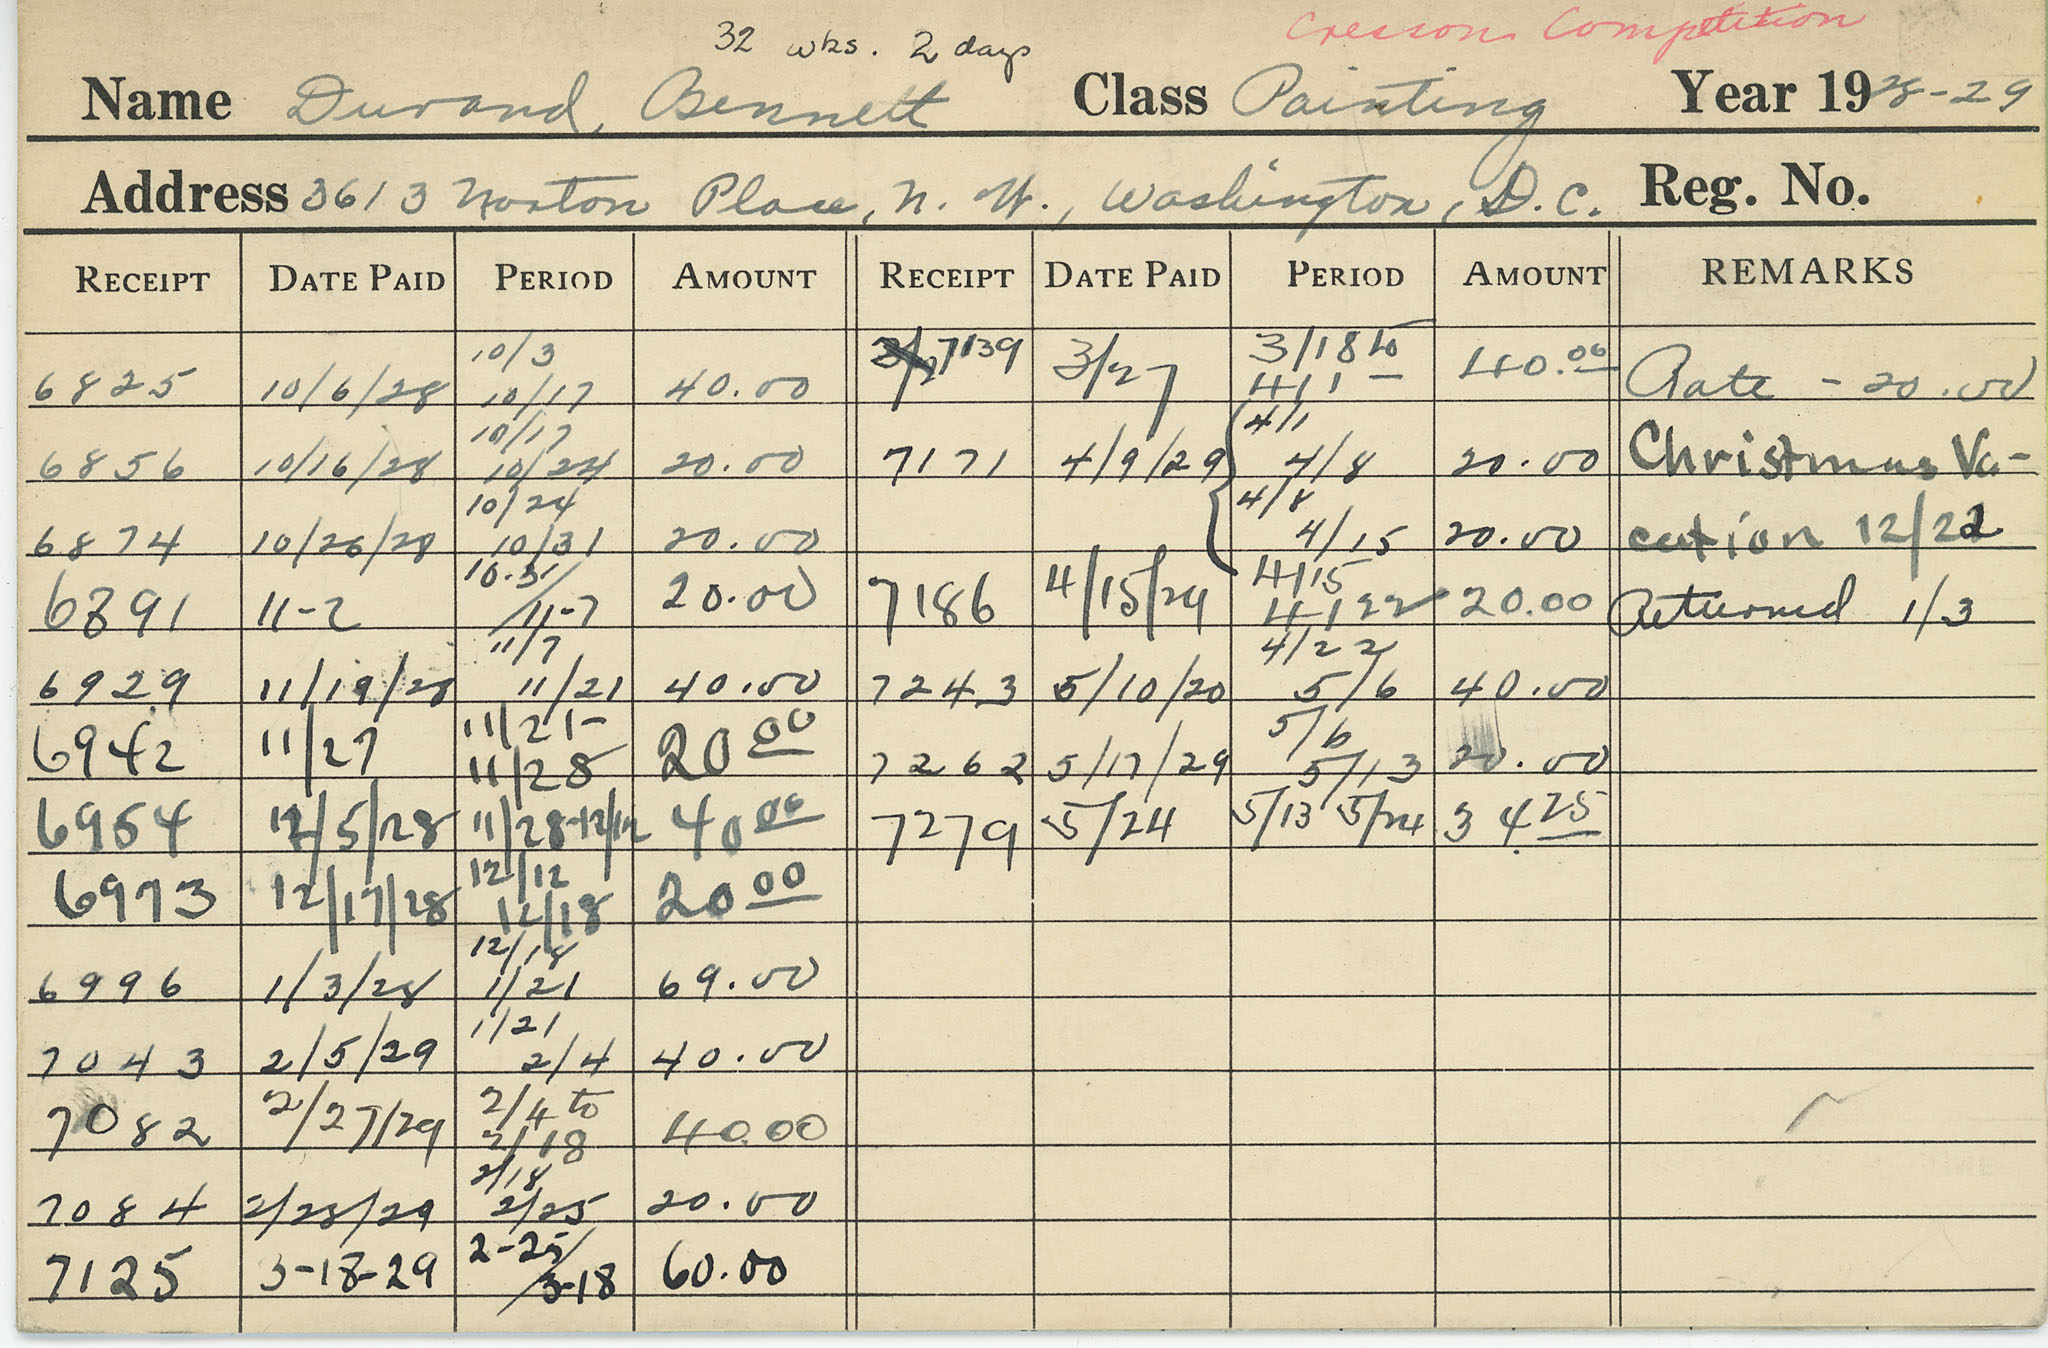 Cresson Competition
32 wks. 2 days
Name Durand, Bennett Class Painting Year 1928-29
Address 3613 Norton Place, N. W., Washington, D.C. Reg. No.
RECEIPT DATE PAID PERIOD AMOUNT RECEIPT DATE PAID PERIOD AMOUNT REMARKS
10/3 7139 3/27 3/18 to 40.00
6825 10/6/28 10/17 40.00 4/1 — Rate - 20.00
10/17 4/1
6856 10/16/28 10/24 20.00 7171 4/9/29 4/8 20.00 Christmas Va-
10/24 4/8
6874 10/26/28 10/31 20.00 4/15 20.00 cation 12/22
10.31/ 4/15
6891 11-2 11-7 20.00 7186 4/15/29 4/22 20.00 Returned 1/3
11/7 4/22
6929 11/19/28 11/21 40.00 7243 5/10/20 5/6 40.00
11/21- 5/6
6942 11/27 11/28 20 00 7262 5/17/29 5/13 20.00
6954 12/5/28 11/28-12/12 40 00 7279 5/24 5/13 5/24 34.25
12/12
6973 12/17/28 12/18 20 00
12/18
6996 1/3/28 1/21 69.00
1/21
7043 2/5/29 2/4 40.00
2/4 to
7082 2/27/29 2/18 40.00
2/18
7084 2/28/29 2/25 20.00
2-25/
7125 3-18-29 3-18 60.00